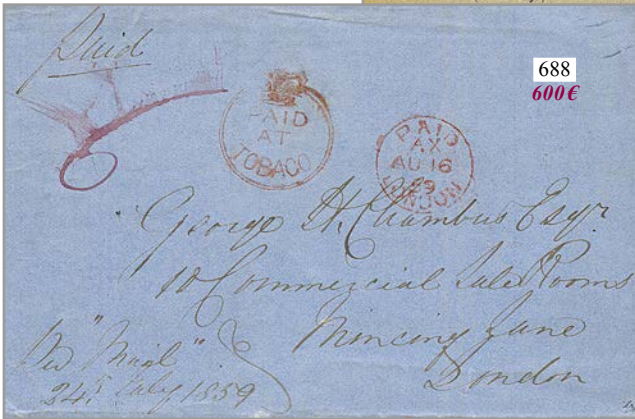 Paid
688
600 €
PAID
AT
TOBAGO
PAID
AX
AU 16
59
LONDON
George H. Chambers Esqr
10 Commercial Sale Rooms
Mincing Lane
London
Per "Mail"
24th July 1859